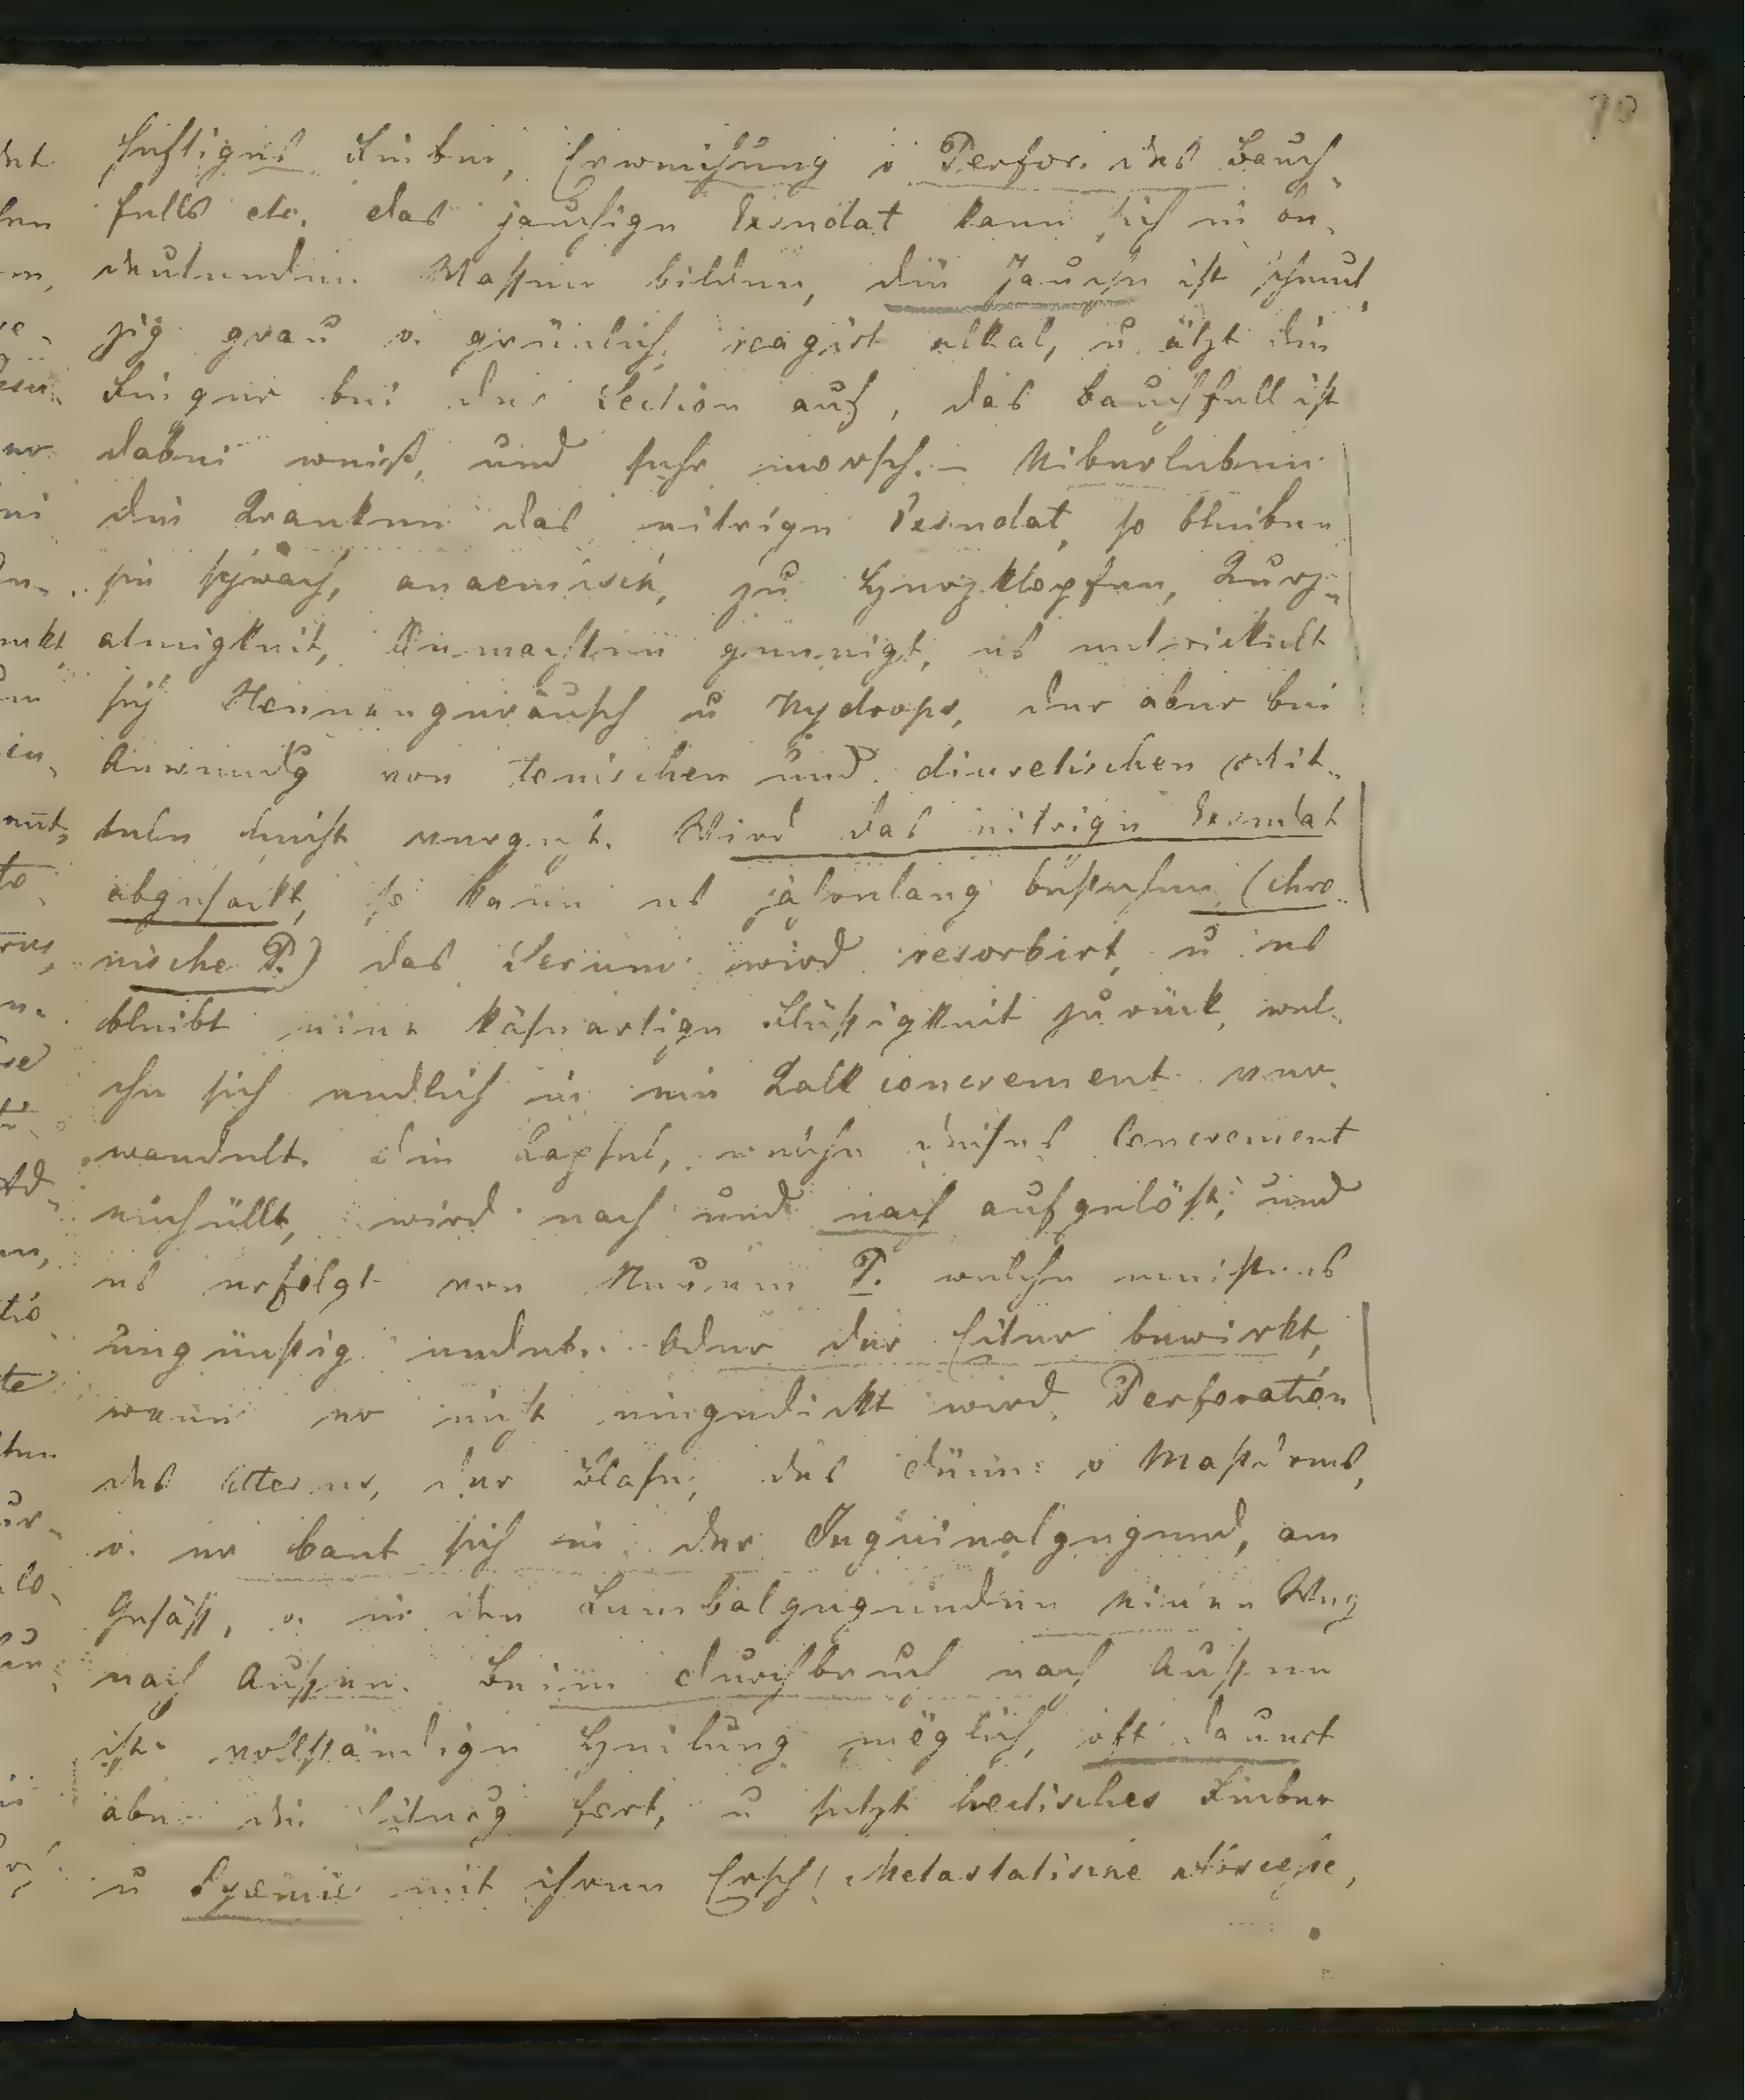 70
heftiges Fieber, Erweichung o. Perfor. des Bauch-
fells etc. das jauchige Exsudat kann sich in be-
deutenden Massen bilden, die Jauche ist schmut-
zig grau o. grünlich, reagirt alkal, u ätzt die
Finger bei der Section auf, das Bauchfell ist
dabei weich, und sehr morsch. – Uiberleben
die Kranken das eitrige Exsudat, so bleiben
sie schwach, anaemisch, zu Herzklopfen, Kurz-
atmigkeit, Ohnmachten geneigt, es entwickelt
sich Nonnengeräusch u Hydrops, der aber bei
Anwendg von tonischen und diuretischen Mit-
teln leicht vergeht. Wird das eitrige Exsudat
abgesackt, so kann es jahrelang bestehen, (chro-
nische P.) das Serum wird resorbirt, u es
bleibt eine käseartige Flüssigkeit zurück, wel-
che sich endlich in ein Kalkconcrement ver-
wandelt. die Kapsel, welche dieses Concrement
einhüllt, wird nach und nach aufgelöst, und
es erfolgt von Neuem P. welche meistens
ungünstig endet. Oder der Eiter bewirkt,
wenn er nicht eingedickt wird, Perforation
des Uterus, der Blase, des dünn- o Mastdarms,
o. er bant sich in der Inguinalgegend, am
Gesäss, o. in den Lumbalgegenden einen Weg
nach Aussen. Beim durchbruch nach Aussen
ist vollständige Heilung möglich, oft dauert
aber die Eiterg fort, u setzt hectisches Fieber
u Pyaemie mit ihren Ersch! Metastatische Abscesse,